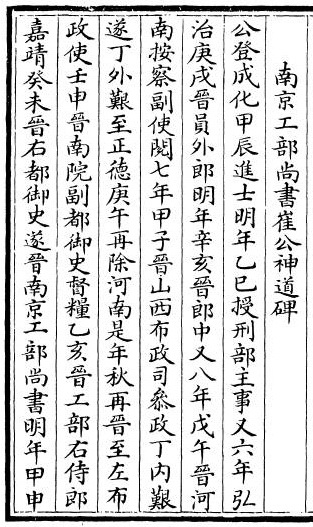 南京工部尚書崔公神道碑
公登成化甲辰進士明年乙巳授刑部主事又六年弘
治庚戌晉員外郎明年辛亥晉郎中又八年戊午晉河
南按察副使閱七年甲子晉山西布政司叅政丁內艱
遂丁外艱至正德庚午再除河南是年秋再晉至左布
政使壬申晉南院副都御史督糧乙亥晉工部右侍郎
嘉靖癸未晉右都御史遂晉南京工部尚書明年甲申